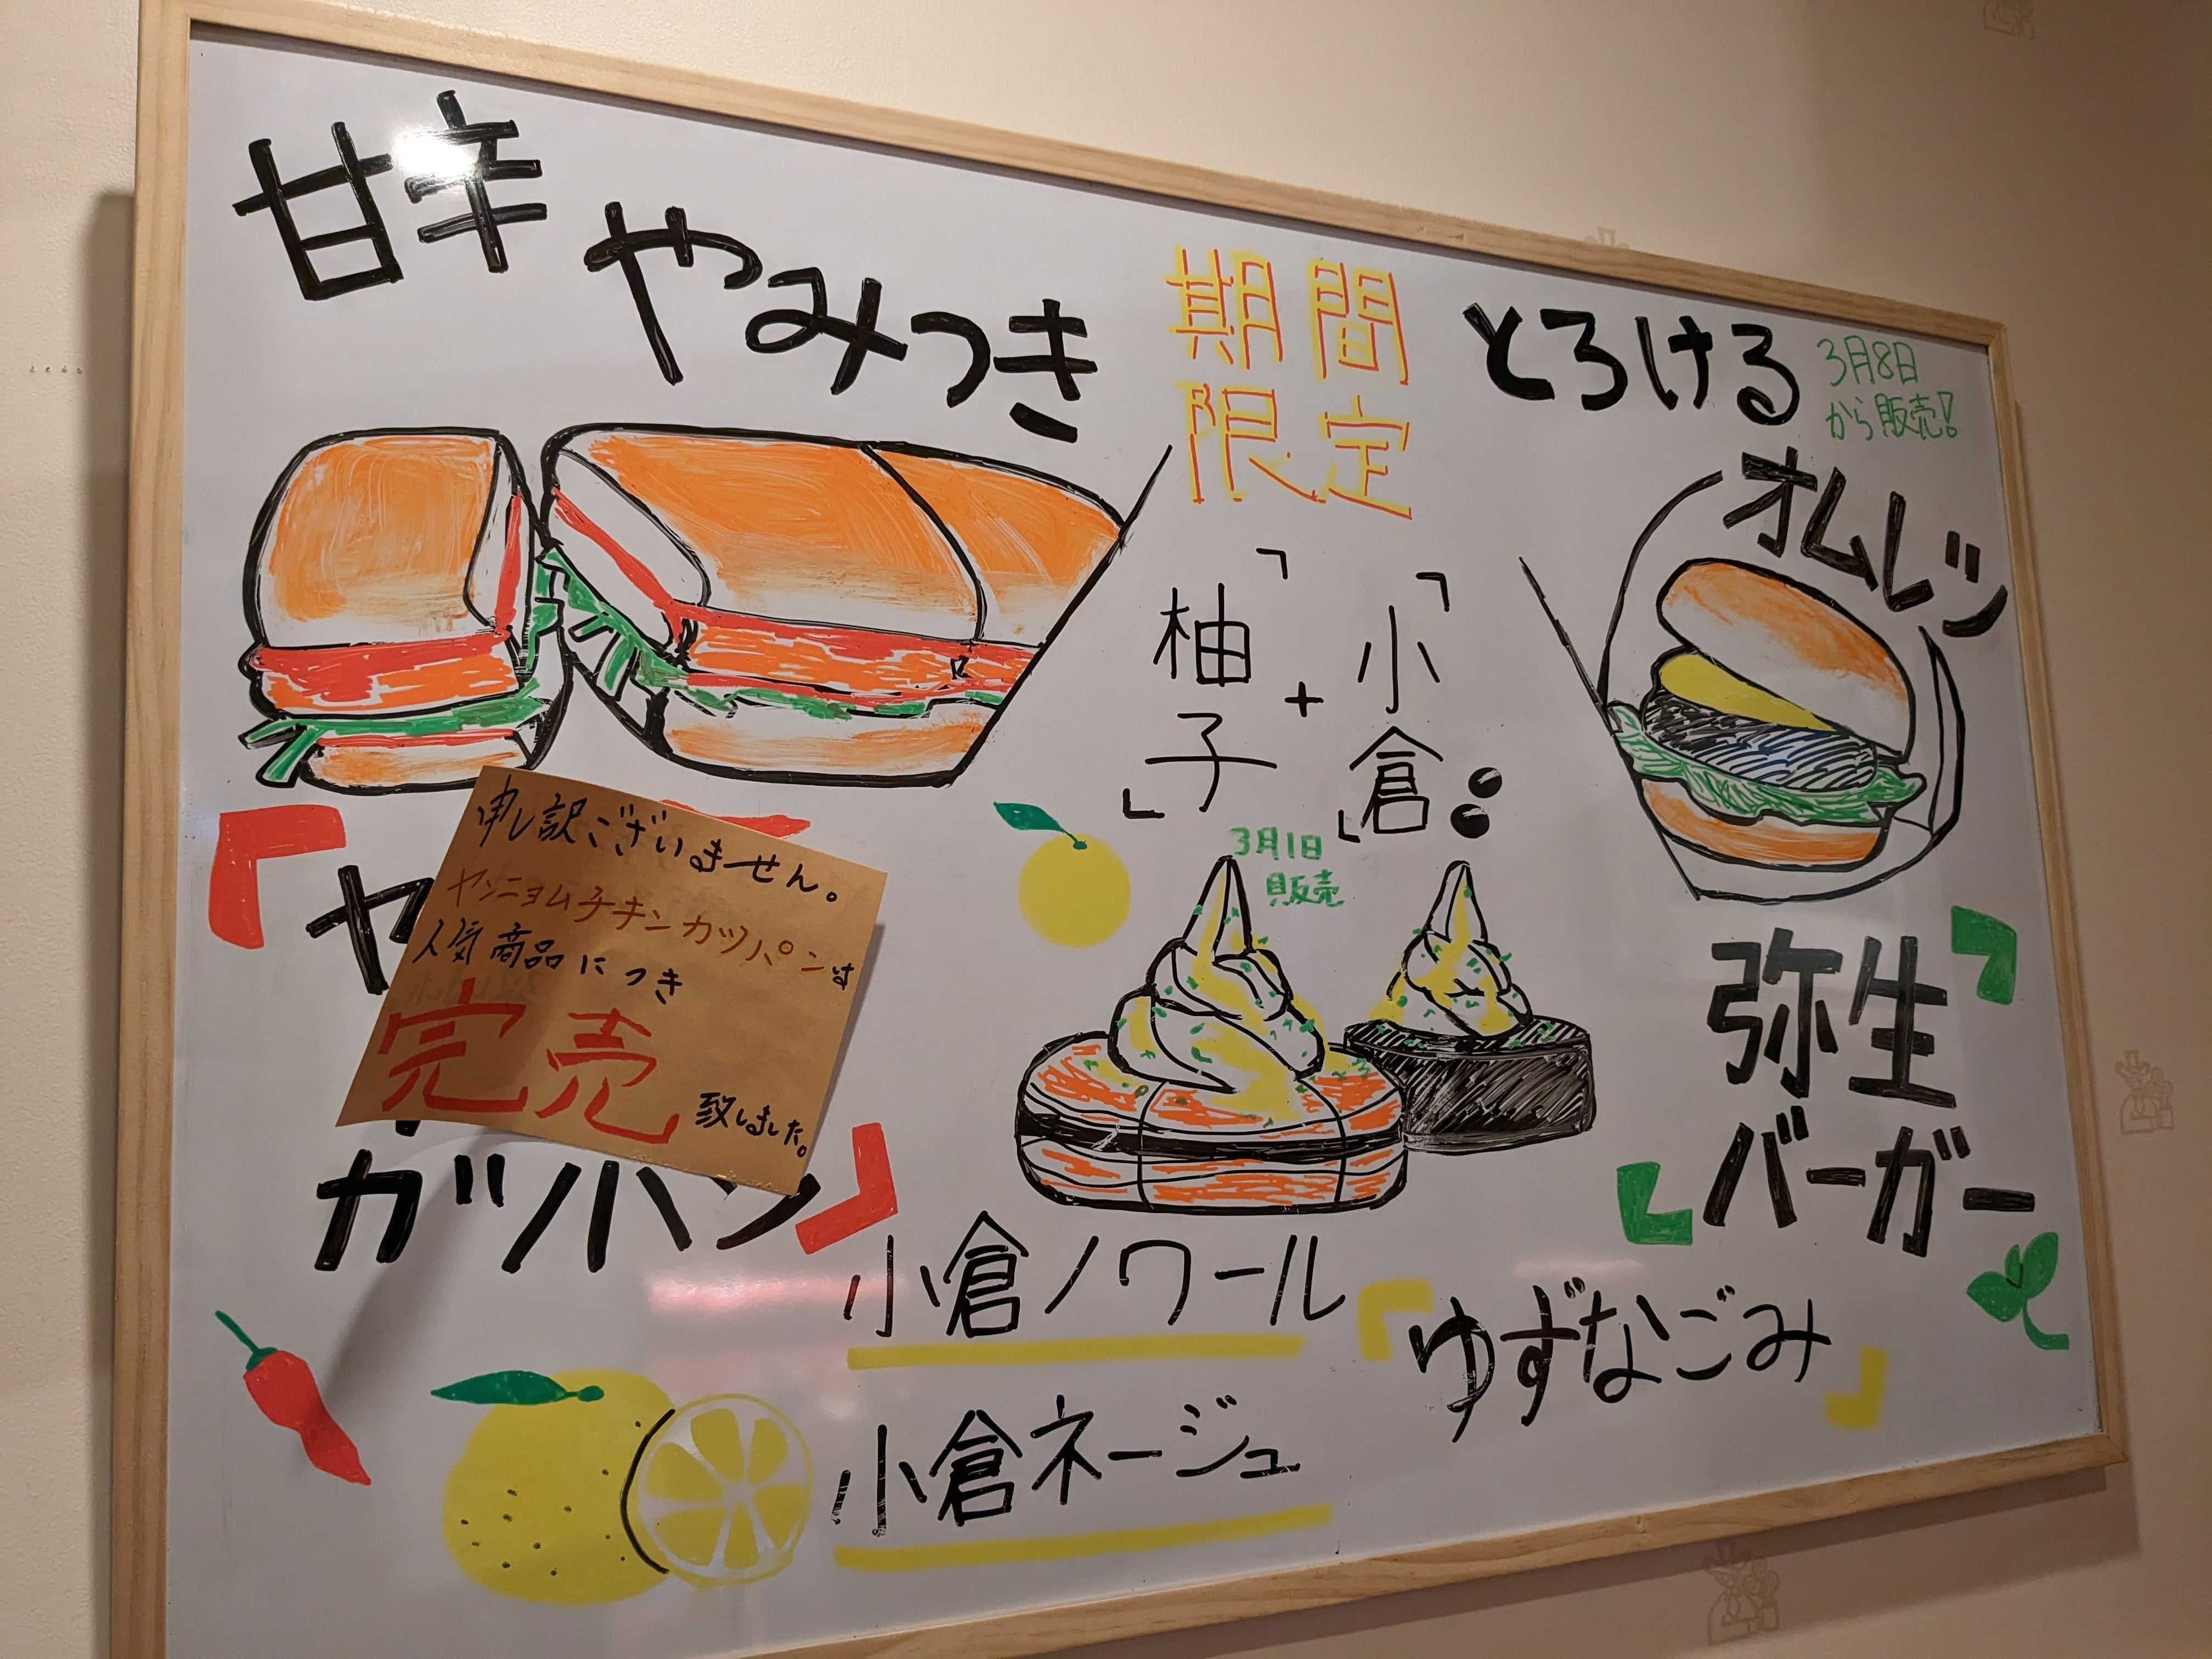 甘辛やみつき
期間
限定
とろける
3月8日
から販売!
オムレツ
「柚子」+「小倉」
3月1日
販売
申し訳ございません。
ヤンニョムチキンカツパンは
人気商品につき
完売致しました。
「ヤ
カツパン」
弥生
バーガー
小倉ノワール
「ゆずなごみ」
小倉ネージュ